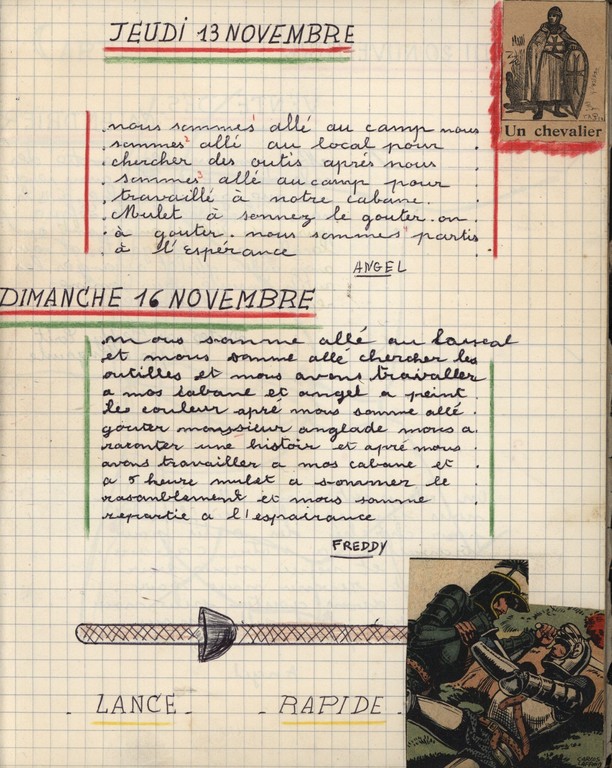 JEUDI 13 NOVEMBRE
Un chevalier
nous sommes allé au camp nous
sommes² allé au local pour
chercher des outis aprés nous
sommes³ allé au camp pour
travaillé a notre cabane.
Mulet à sonnez le gouter. on
à gouter. nous sommes partis
à l'Espérance
ANGEL
DIMANCHE 16 NOVEMBRE
nous somme allé au
et nous somme allé chercher les
outilles et nous avons travailler
a nos cabane et angel a peint
les couleur apré nous somme allé
gouter monssieur anglade nous a
raconter une histoir et apré nous
avons travailler a nos cabane et
a 5 heure mulet a sonner le
rasemblement et nous somme
repartie a l'espairance
FREDDY
LANCE RAPIDE